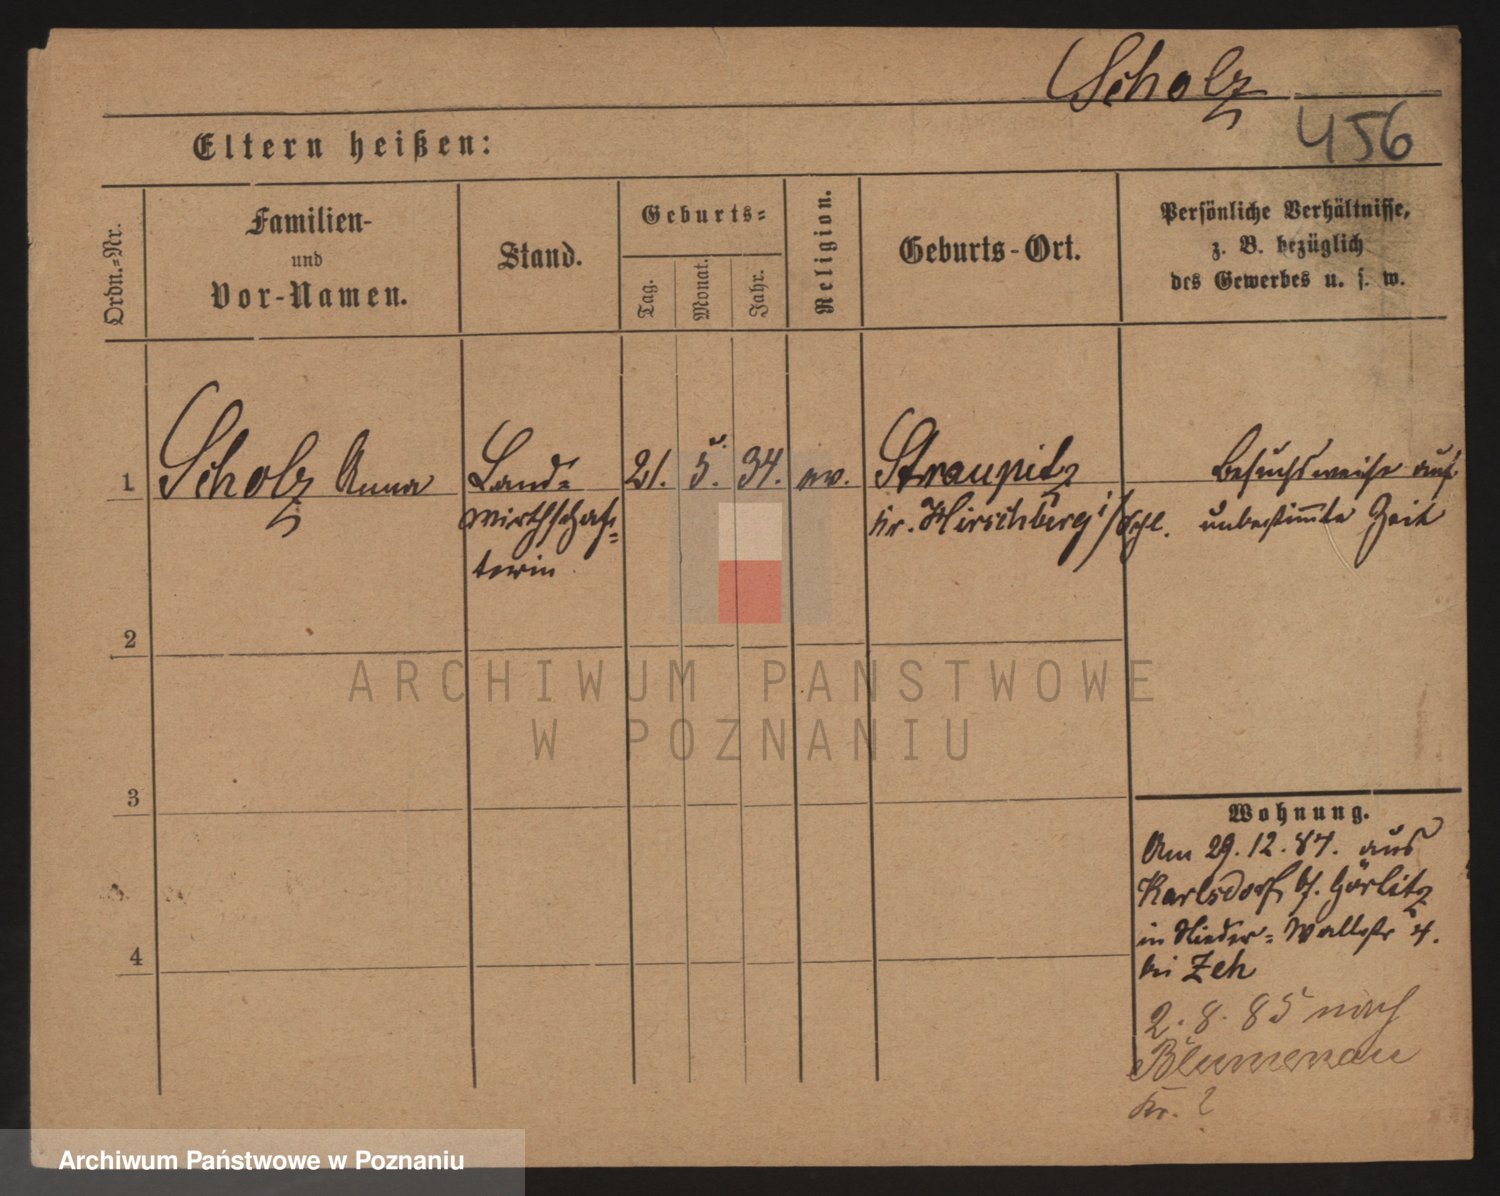 Scholz
456
Eltern heißen:
Ordn.-Nr.
Familien-
und
Vor-Namen.
Stand.
Geburts-
Tag.
Monat.
Jahr.
Religion.
Geburts-Ort.
Persönliche Verhältnisse,
z. B. bezüglich
des Gewerbes u. s. w.
1 Scholz Anna Land- 21. 5. 34. ev. Straupitz Besuchsweise auf
wirthschaf- Kr. Hirschberg i/Schl. unbestimmte Zeit
terin
2
ARCHIWUM PAŃSTWOWE
W POZNANIU
3
Wohnung.
Am 29.12.84. aus
Karlsdorf b/. Görlitz
in Nieder-Wallstr 4.
bei Zeh
4
2.8.85 nach
Blumenau
Kr. ?
Archiwum Państwowe w Poznaniu